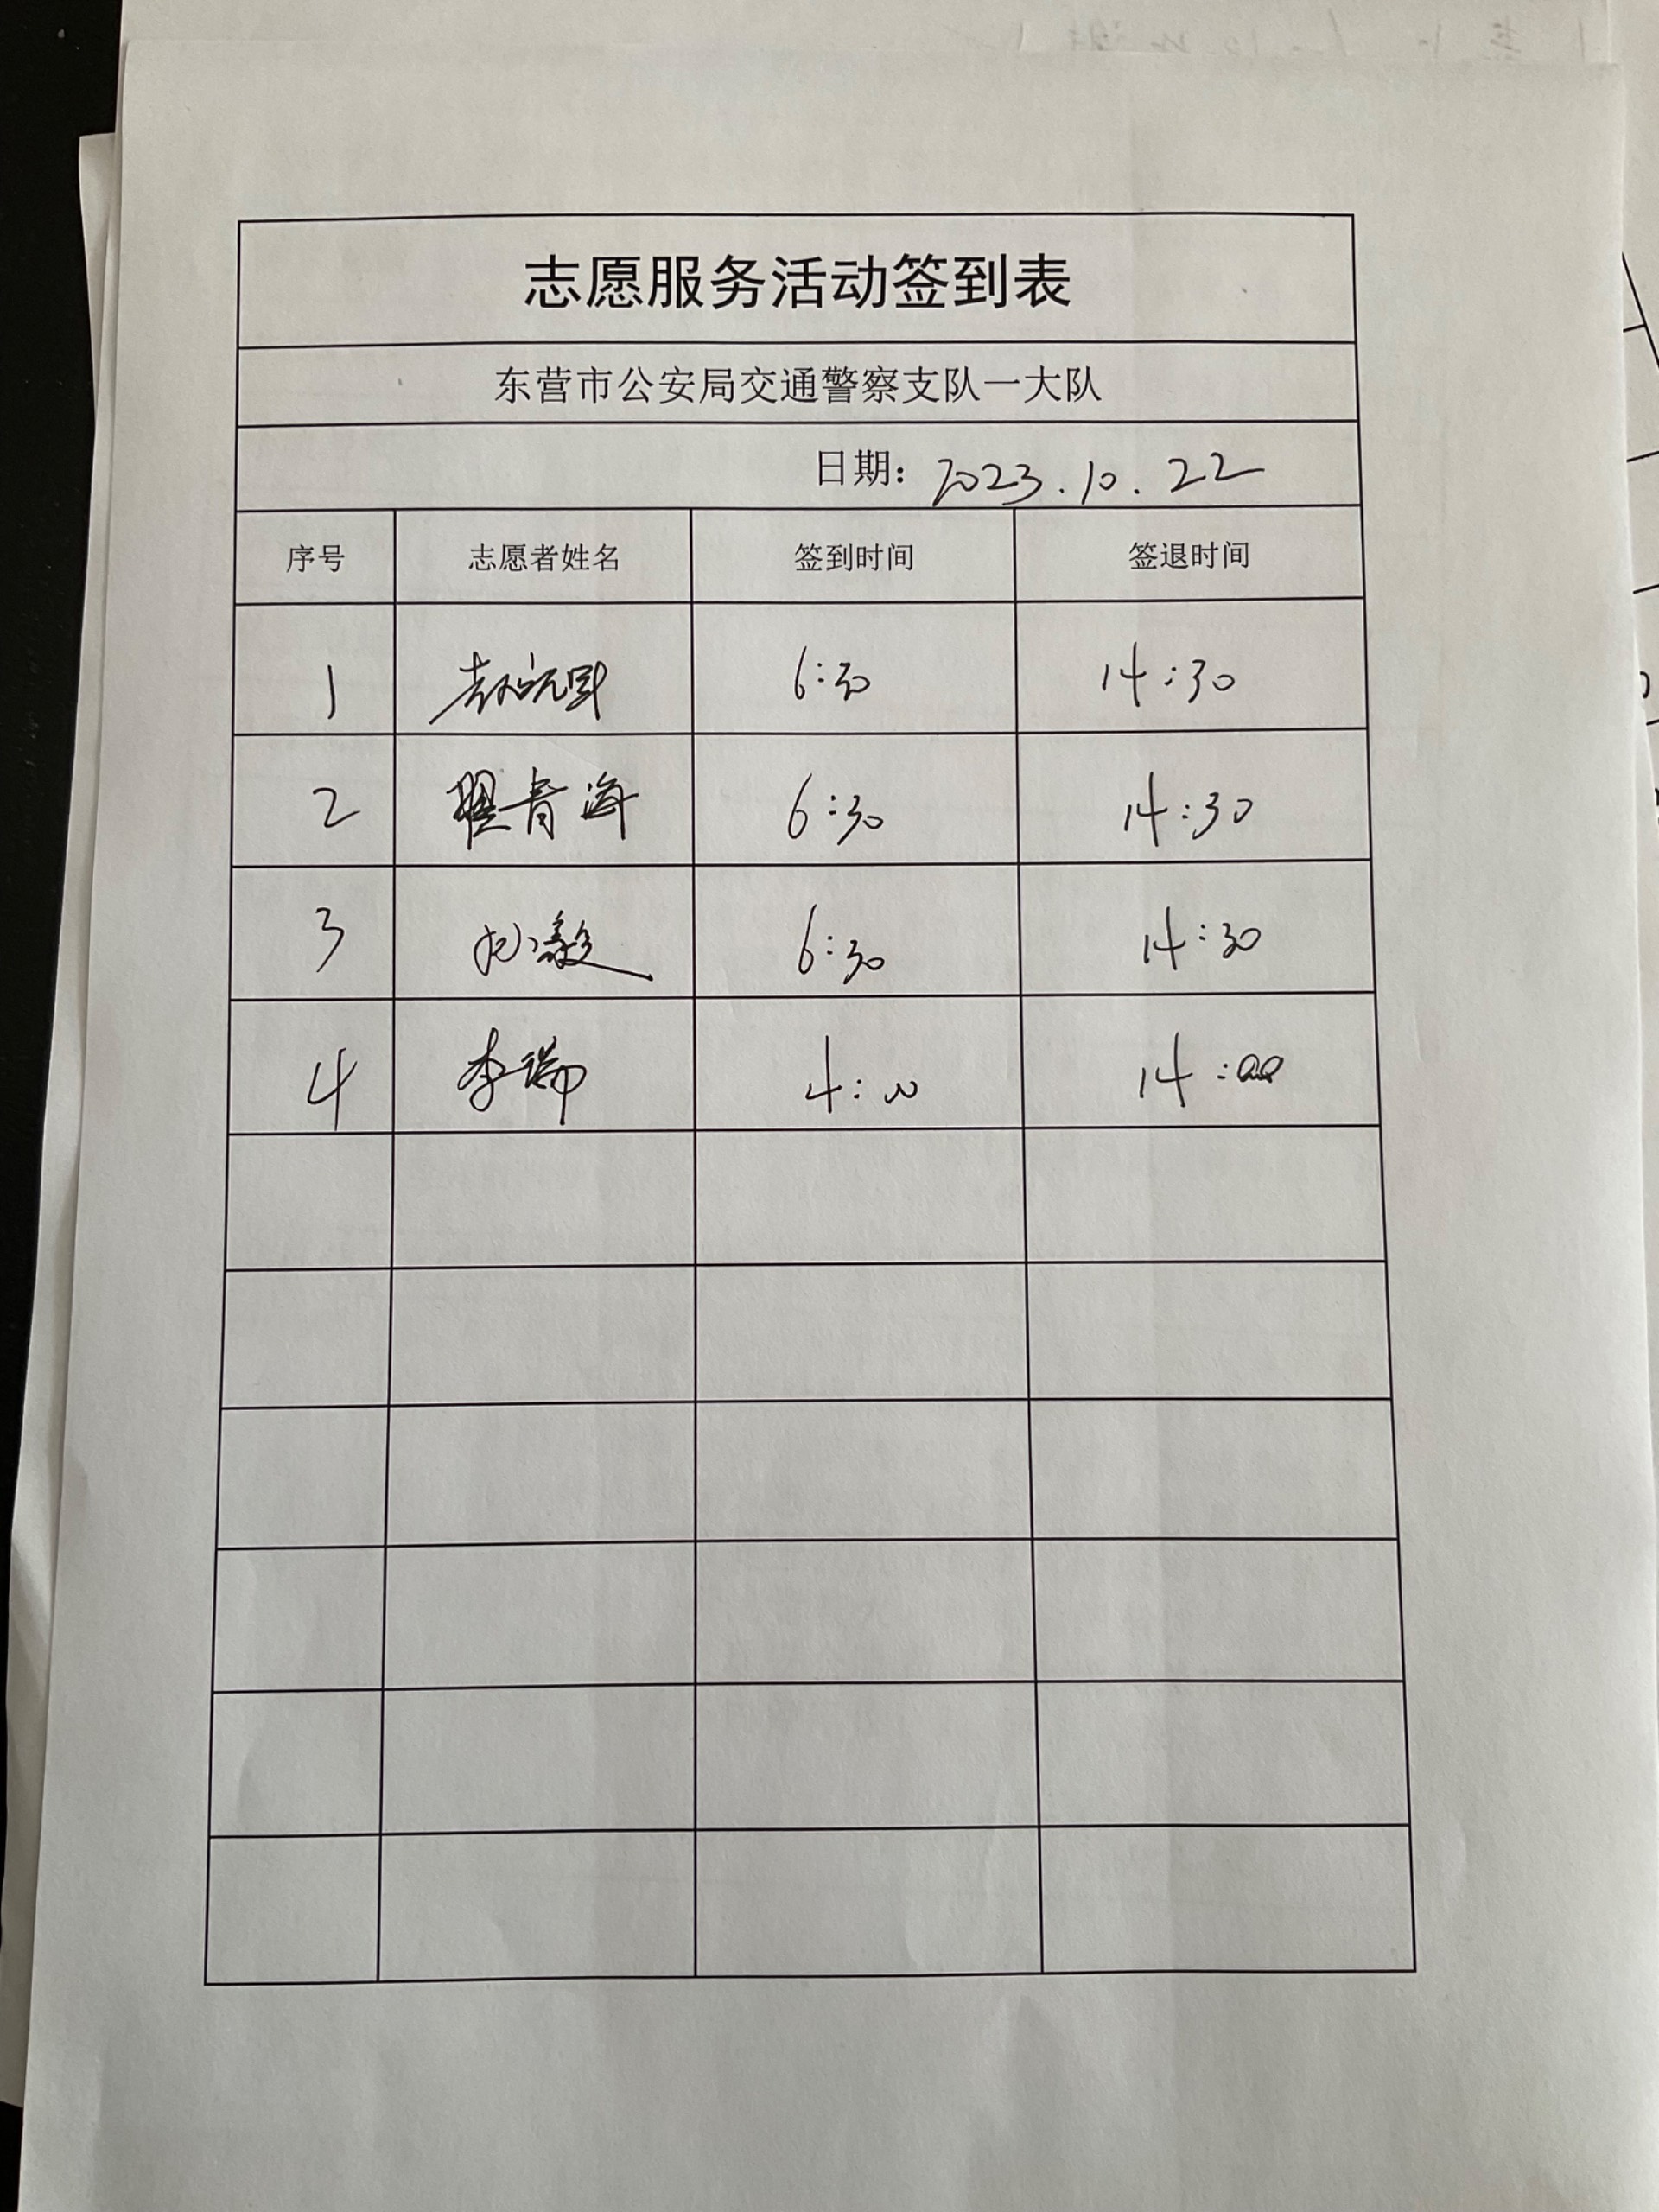 志愿服务活动签到表
东营市公安局交通警察支队一大队
日期：2023.10.22
序号 志愿者姓名 签到时间 签退时间
1 6:30 14:30
2 翟青海 6:30 14:30
3 孙毅 6:30 14:30
4 李瑞 4:00 14:00